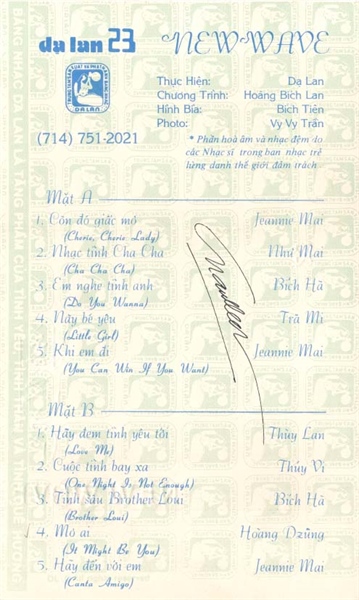 dạ lan 23 NEW WAVE
TRUNG TÂM SẢN XUẤT VÀ PHÁT HÀNH BĂNG NHẠC
DẠ LAN
Thực Hiện: Dạ Lan
Chương Trình: Hoàng Bích Lan
Hình Bìa: Bích Tiên
Photo: Vy Vy Trần
(714) 751-2021
* Phần hoà âm và nhạc đệm do
các Nhạc sĩ trong ban nhạc trẻ
lừng danh thế giới đảm trách
Mặt A
1. Còn đó giấc mơ Jeannie Mai
(Cherie, Cherie Lady)
2. Nhạc tình Cha Cha Như Mai
(Cha Cha Cha)
3. Em nghe tình anh Bích Hà
(Do You Wanna)
4. Này bé yêu Trà Mi
(Little Girl)
5. Khi em đi Jeannie Mai
(You Can Win If You Want)
Mặt B
1. Hãy đem tình yêu tới Thùy Lan
(Love Me)
2. Cuộc tình bay xa Thúy Vi
(One Night Is Not Enough)
3. Tình sầu Brother Loui Bích Hà
(Brother Loui)
4. Mơ ai Hoàng Dzũng
(It Might Be You)
5. Hãy đến với em Jeannie Mai
(Canta Amigo)